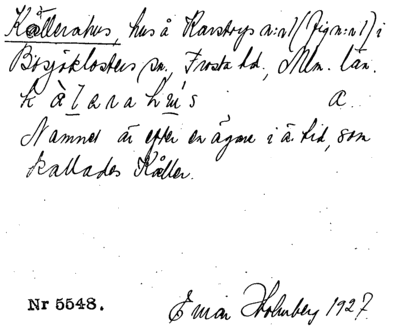 Kållerahus, hus å Karstorps n:r 1 (Fig n:r 1) i
Bosjöklosters sn, Frosta hd, Mlm. län.
kàlarahu̇s a.
Namnet är efter en ägare i ä. tid, som
kallades Kåller.
Nr 5548.
Einar Holmberg 1927.